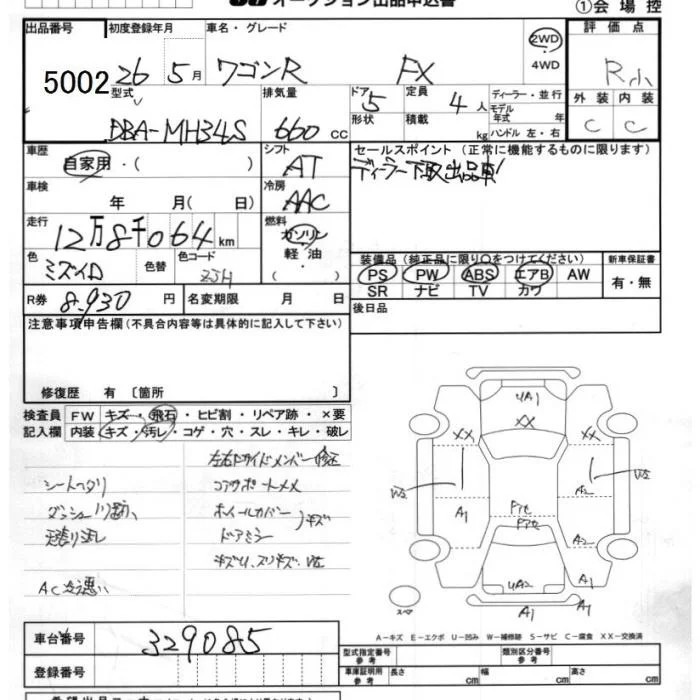 オークション出品申込書
①会場控
出品番号 初度登録年月 車名・グレード 2WD 評価点
5002 26 5月 ワゴンR FX 4WD R小
型式 排気量 ドア 5 定員 4人 ディーラー・並行 外装 内装
DBA-MH34S 660cc 形状 積載 kg モデル年式 年 C C
ハンドル 左・右
車歴 シフト セールスポイント(正常に機能するものに限ります)
自家用・( ) AT ディーラー下取出品車!
車検 冷房
年 月( 日) AAC
走行 燃料
12万8千064km ガソリン
色 色替 色コード 軽油 装備品(純正品に限り○をつけてください) 新車保証書
ミズイロ ZJH ・( ) PS PW ABS エアB AW 有・無
SR ナビ TV カワ
R券 8,930円 名変期限 月 日 後日品
注意事項申告欄(不具合内容等は具体的に記入して下さい)
修復歴 有〔箇所 〕
検査員 FW キズ・飛石・ヒビ割・リペア跡・×要
記入欄 内装 キズ・汚レ・コゲ・穴・スレ・キレ・破レ
左右Fサイドメンバー修正
シートヘタリ コアサポートメメ
ホイールカバー キズ
ドアミラー
AC冷え悪い
UA1
XX
XX XX
A2
A1 A2
UA2 A1
A1 A1
A-キズ E-エクボ U-凹み W-補修跡 S-サビ C-腐食 XX-交換済
車台番号 329085
型式指定番号 参考 類別区分番号 参考
登録番号 車庫証明用 参考 長さ cm 幅 cm 高さ cm